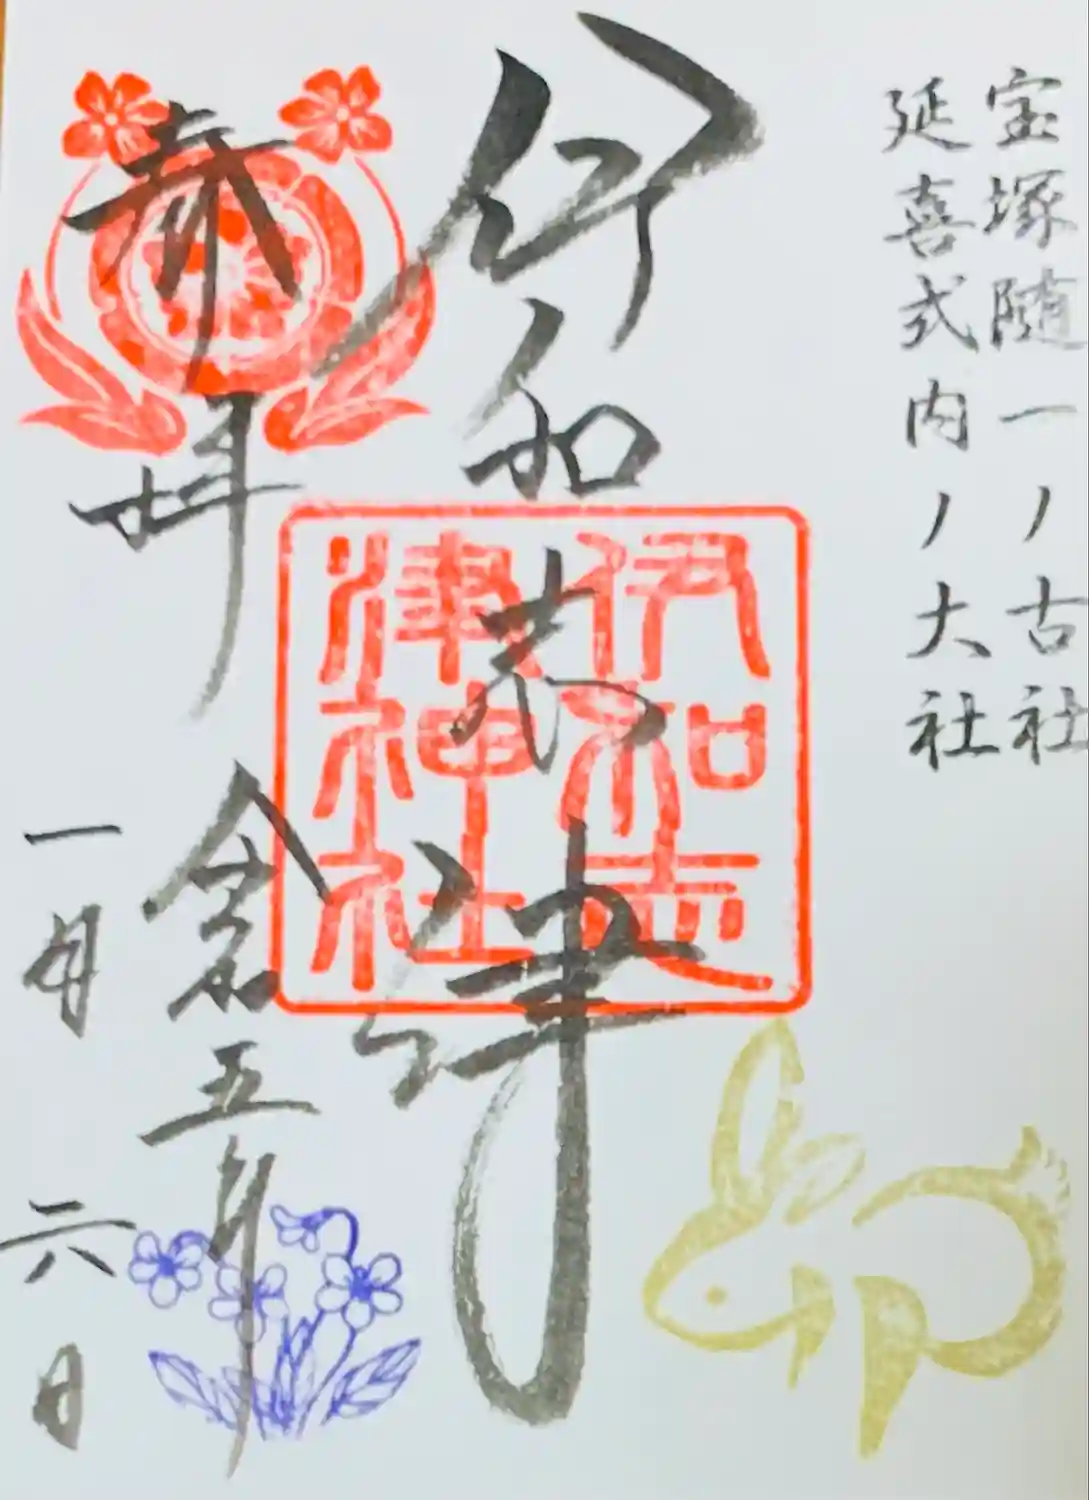 宝塚随一ノ古社
延喜式内ノ大社
伊和志津
伊和志
津神社
奉拝
令和五年
一月六日